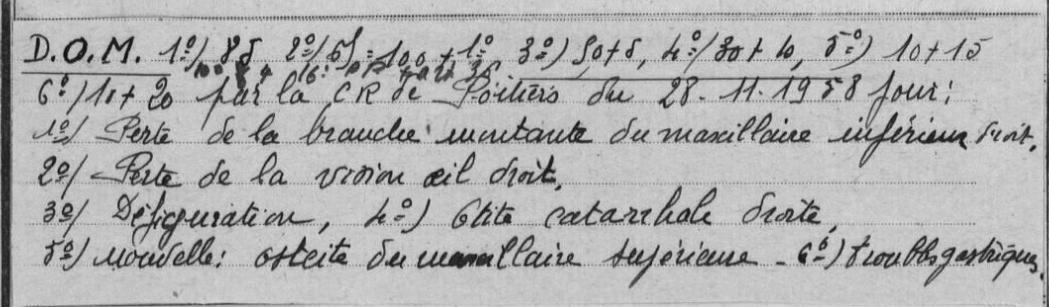 D.O.M. 1º/ 85 2º/ 65 = 100 + 1º 3º) 50+5, 4º/ 30+10, 5º) 10+15
6º/ 10+20 par la CR de Poitiers du 28-11-1958 pour:
1º/ Perte de la branche montante du maxillaire inférieur droit.
2º/ Perte de la vision œil droit,
3º/ Défiguration, 4º) Otite catarrhale droite,
5º/ nouvelle: ostéite du maxillaire supérieure - 6º) troubles gastriques.